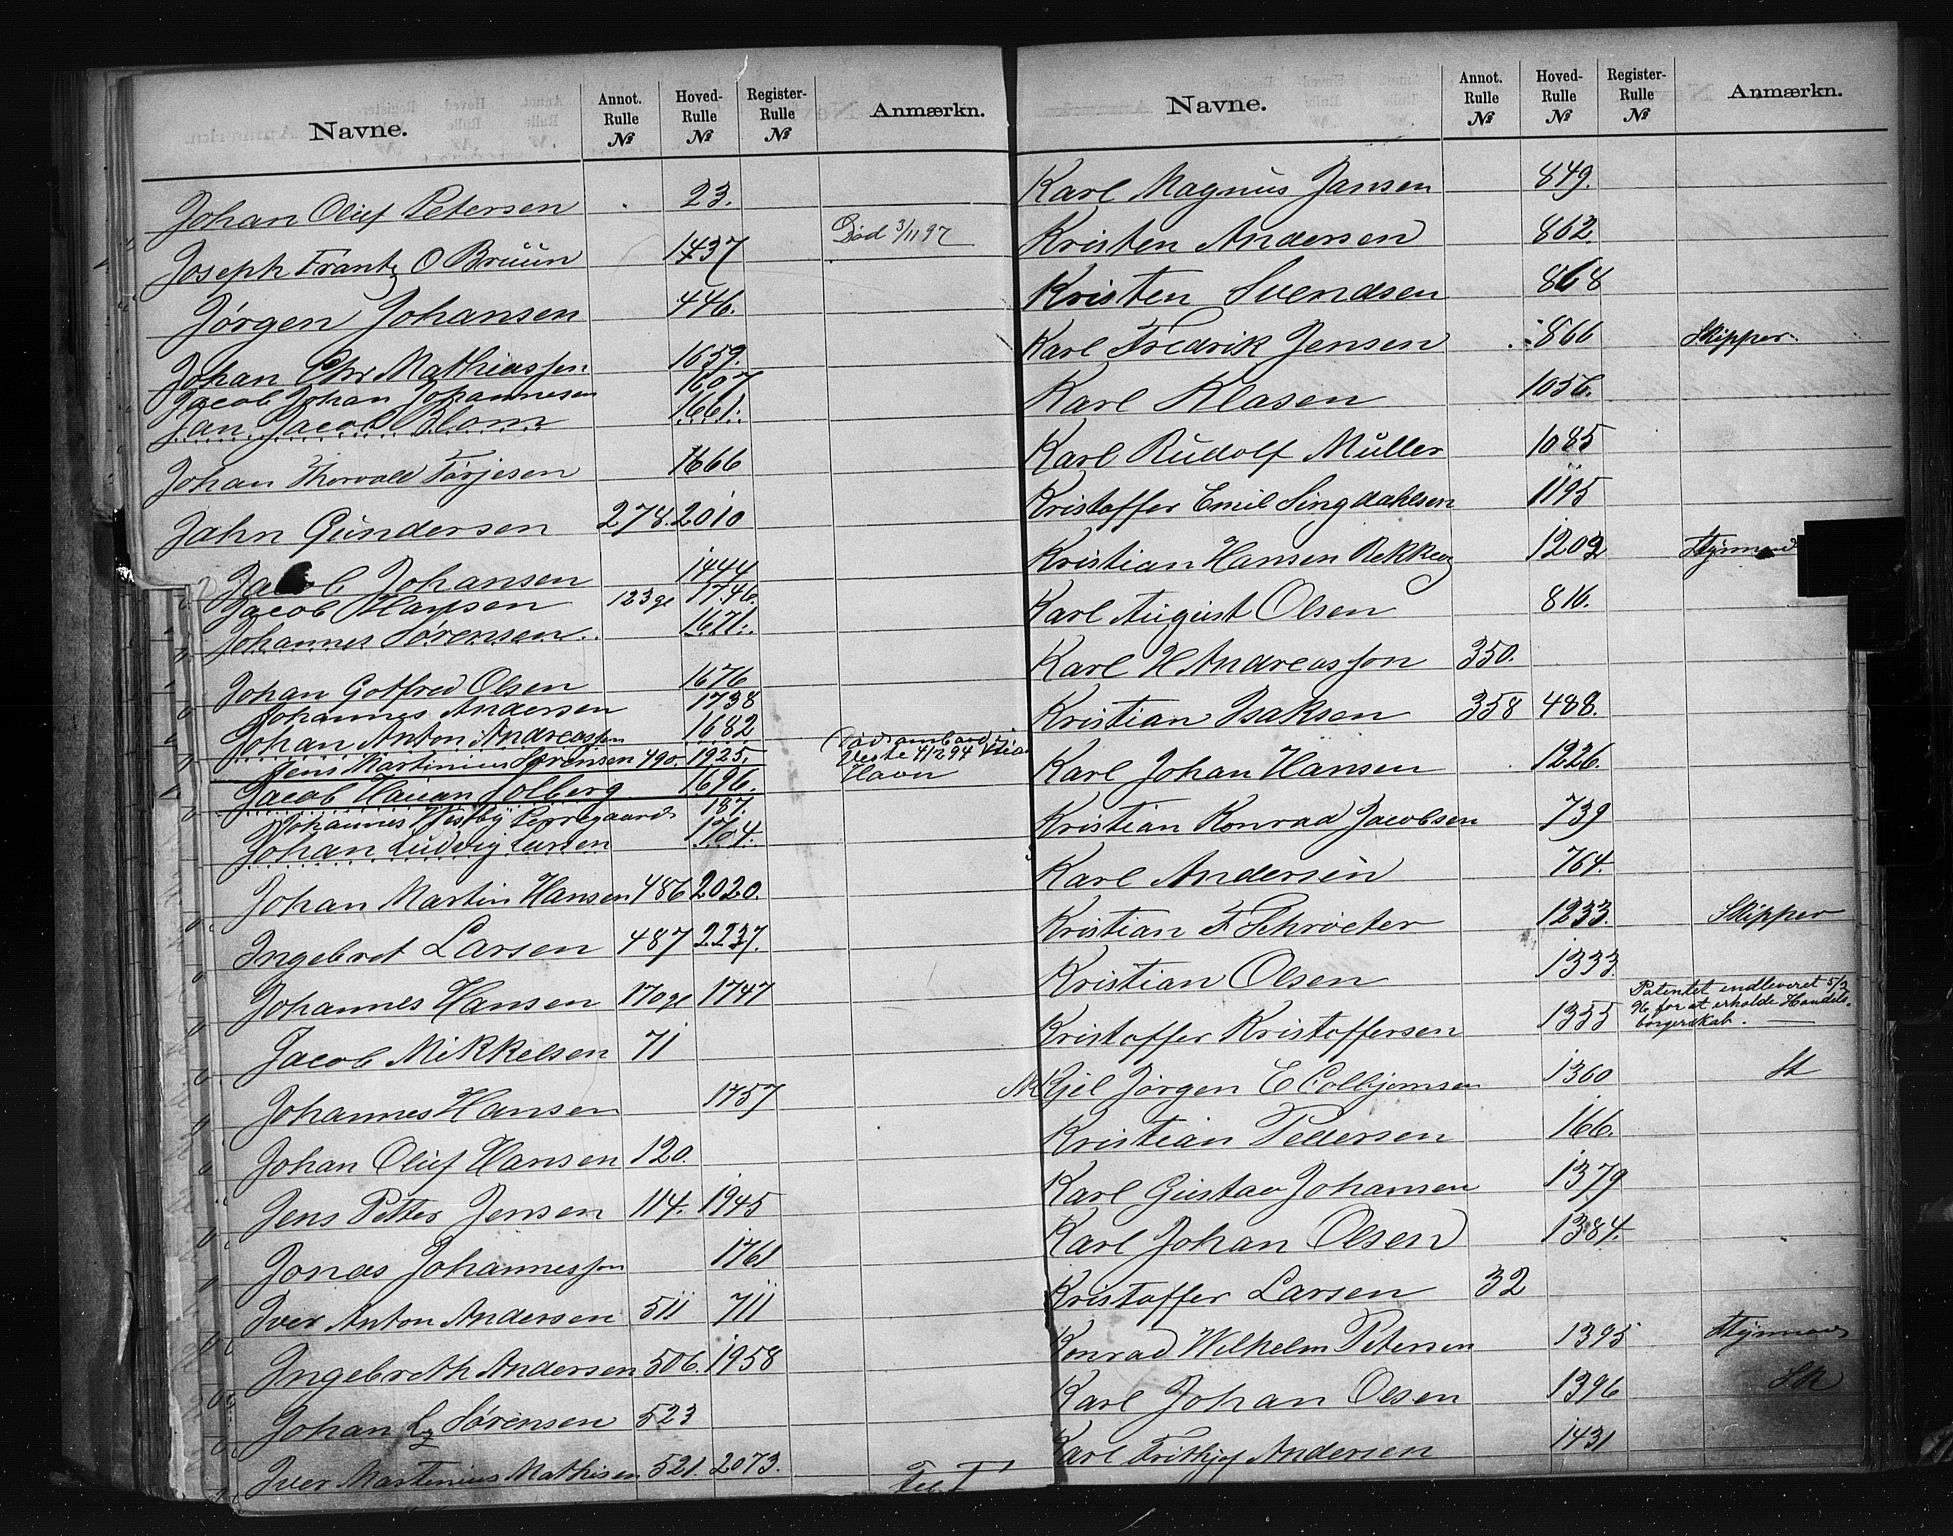 Navne. Annot. Rulle № Hoved- Rulle № Register- Rulle № Anmærkn.
Johan Oluf Petersen 23.
Joseph Frantz O Bruun 1437 Død 3/11 97
Jørgen Johansen 446.
Johan Chr Mathiassen 1659.
Jacob Johan Johannesen 1607
Jan Jacob Blom 1661.
Johan Thorvald Torjesen 1666
Jahn Gundersen 278. 2010
Jacob Johansen 1444
Jacob Hansen 123 gl 1746.
Johannes Sørensen. 1671.
Johan Gotfred Olsen 1676
Johannes Andersen 1738
Johan Anton Andreassen 1682
Jens Martinius Sørensen 490. 1925.
Jacob Hauan Solberg 1696. Havn
Johannes 187.
Johan Ludvig Larsen 1704.
Johan Martin Hansen 486 2020.
Ingebret Larsen 487 2237.
Johannes Hansen 170 gl 1747
Jacob Mikkelsen 71
Johannes Hansen 1757
Johan Oluf Hansen 120.
Jens Petter Jensen 114. 1945
Jonas Johannessen 1761
Iver Anton Andersen 511 711
Ingebreth Andersen 506. 1958
Johan Sørensen 523
Iver Martinius Mathisen 521. 2073.
Navne. Annot. Rulle № Hoved- Rulle № Register- Rulle № Anmærkn.
Karl Magnus Jansen 849.
Kristen Andersen 862.
Kristen Svendsen 868
Karl Fredrik Jensen 866 Skipper.
Karl Klasen 1056.
Karl Rudolf Müller 1085
Kristoffer Emil Singdahlsen 1195
Kristian Hansen Rekkevig 1202 Styrmand
Karl August Olsen 816.
Karl H Andreassen 350.
Kristian Isaksen 358 488.
Karl Johan Hansen 1226.
Kristian Konrad Jacobsen 739
Karl Andersen 764.
Kristian F Schrøeter 1233. Skipper
Kristian Olsen 1333.
Kristoffer Kristoffersen 1355 Patentet indleveret 5/2
96 for at erholde Handels-
borgerskab.
Kjel Jørgen E Colbjørnsen 1360 St
Kristian Pedersen 166.
Karl Gustav Johansen 1379
Karl Johan Olsen 1384.
Kristoffer Larsen 32
Konrad Wilhelm Petersen 1395 Styrmand
Karl Johan Olsen 1396 Sk
Karl Frithjof Andersen 1431